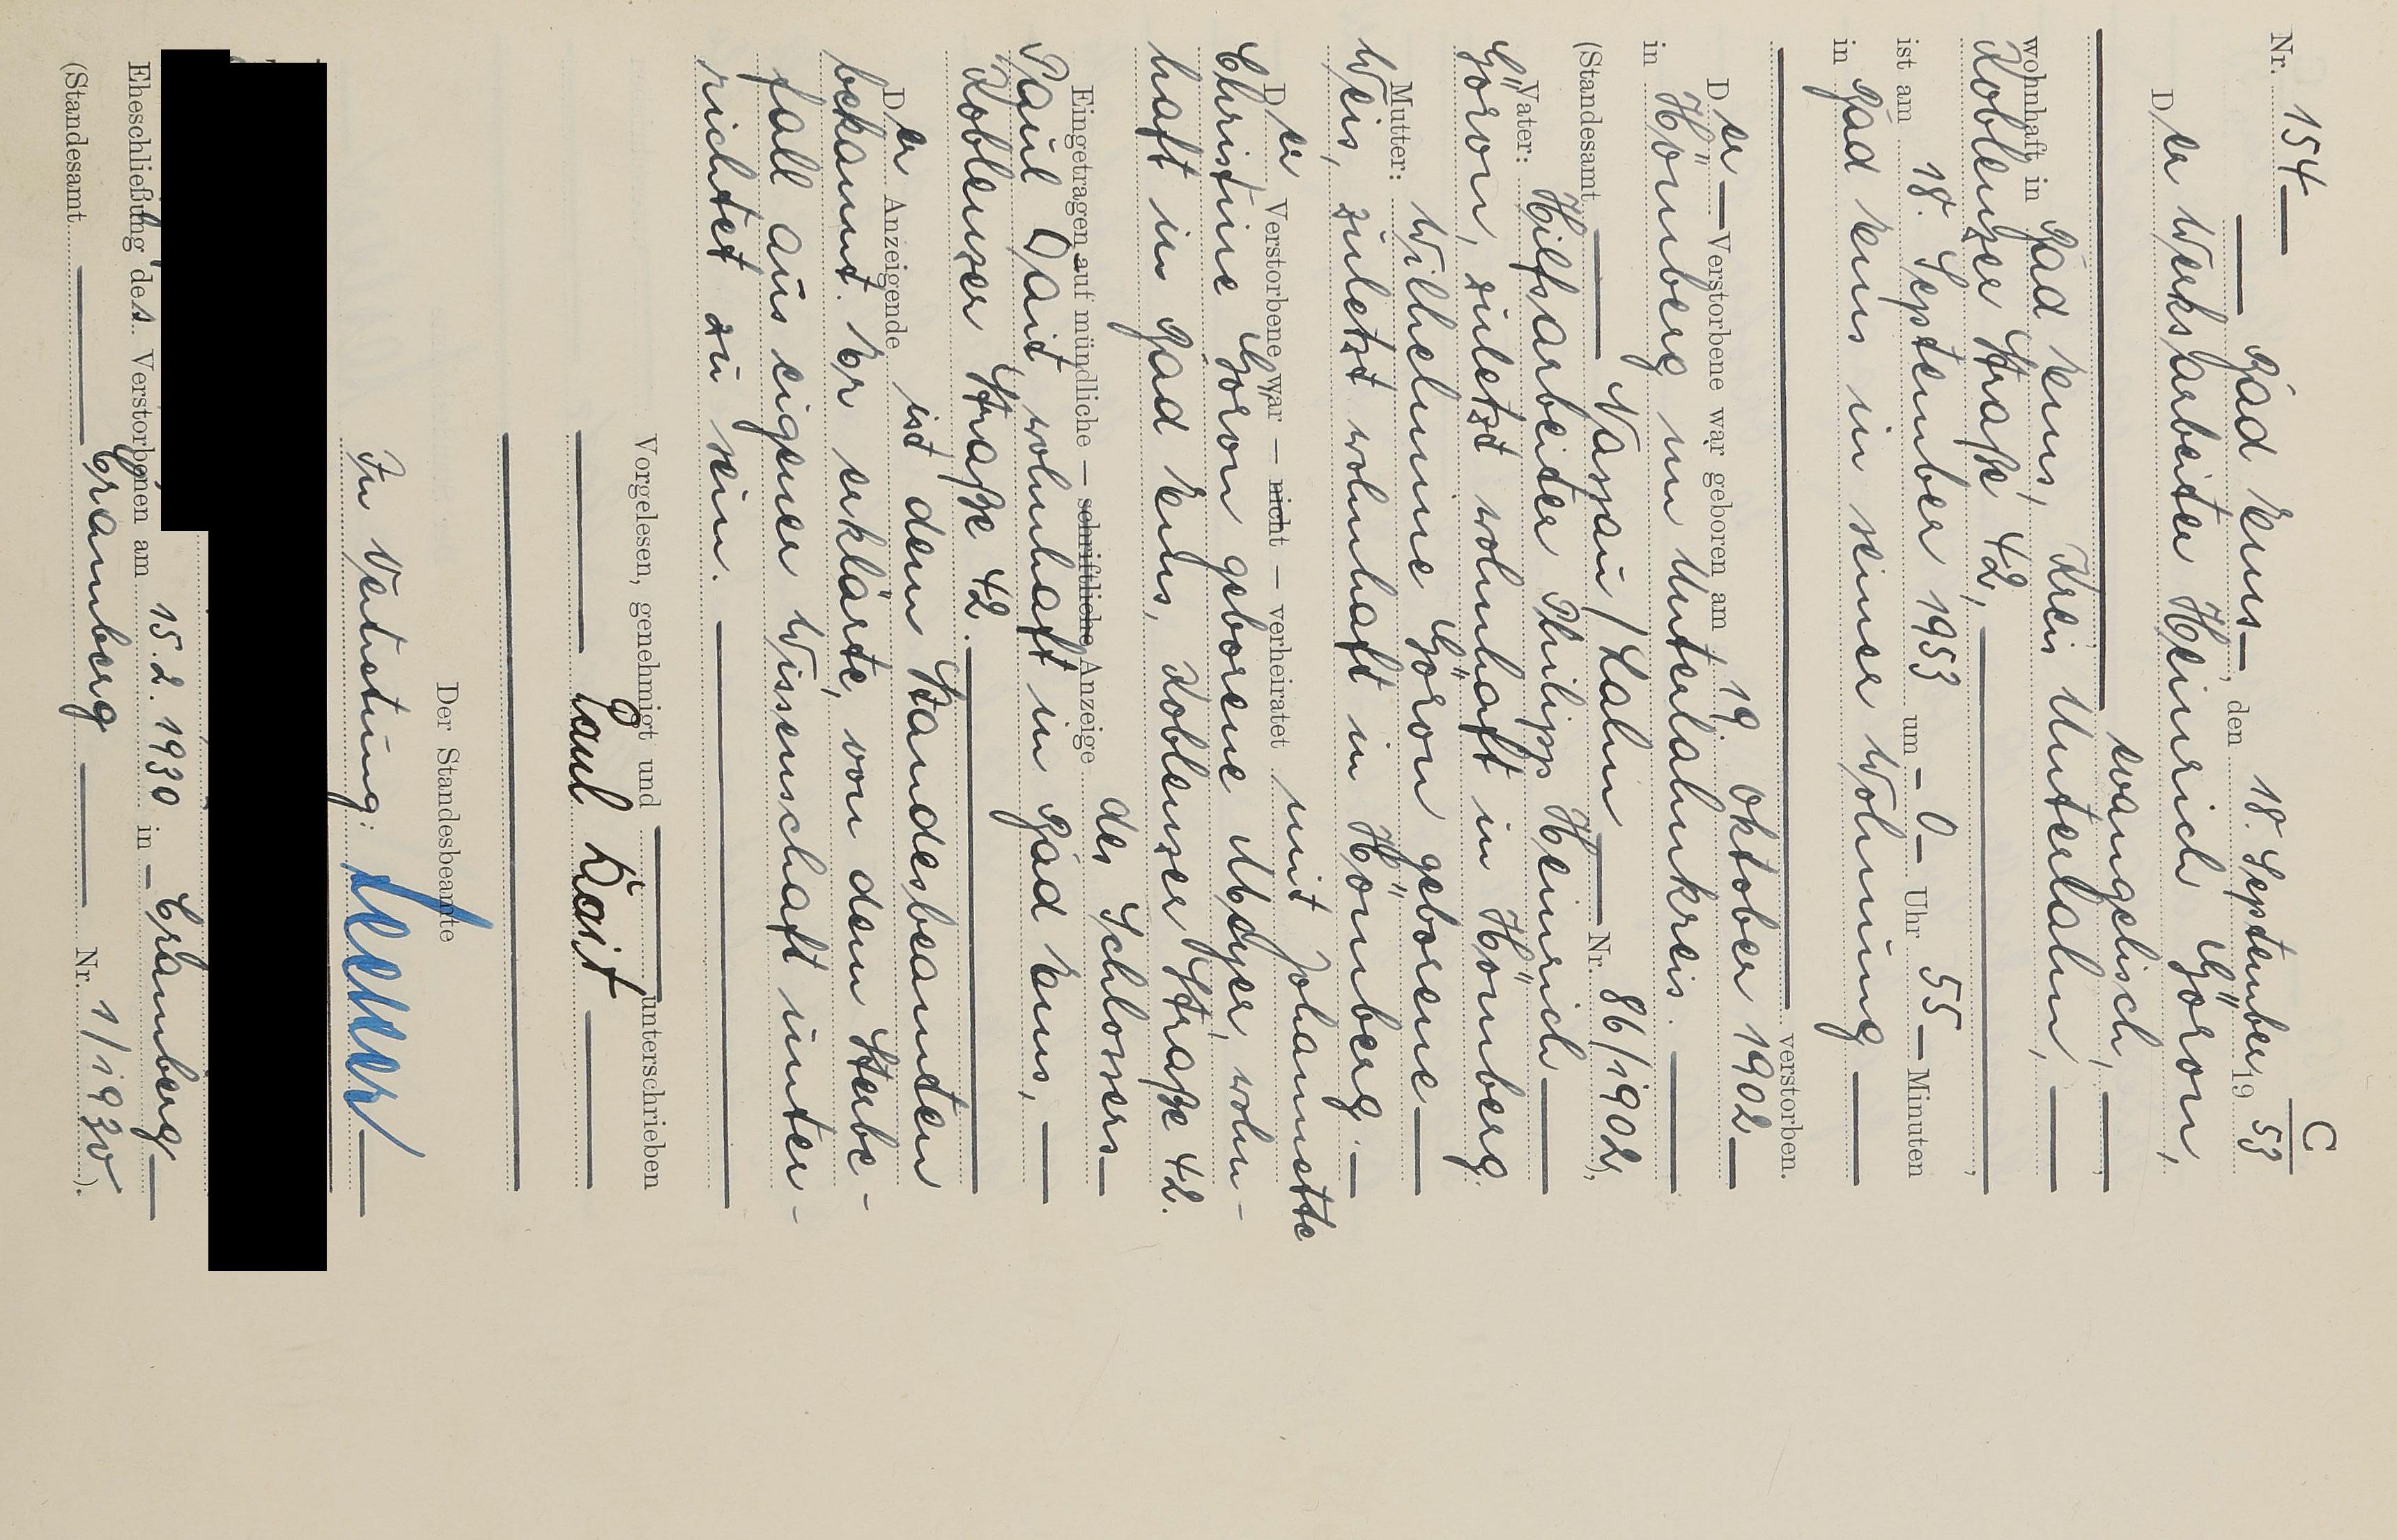 C
Nr. 154
Bad Ems, den 18. September 1953
Der Werksarbeiter Heinrich Göron,
evangelisch,
wohnhaft in Bad Ems, Kreis Unterlahn,
Koblenzer Straße 42,
ist am 18. September 1953 um – 0 – Uhr 55 – Minuten
in Bad Ems in seiner Wohnung
verstorben.
Der — Verstorbene war geboren am 19. Oktober 1902
in Hömberg im Unterlahnkreis.
(Standesamt — Nassau/Lahn — Nr. 86/1902),
Vater: Hilfsarbeiter Philipp Heinrich
Göron, zuletzt wohnhaft in Hömberg.
Mutter: Wilhelmine Göron geborene
Weis, zuletzt wohnhaft in Hömberg.
Der Verstorbene war – nicht – verheiratet mit Johannette
Christine Göron geborene Meyer, wohn-
haft in Bad Ems, Koblenzer Straße 42.
Eingetragen auf mündliche – schriftliche Anzeige des Schlossers
Paul Dait, wohnhaft in Bad Ems,
Koblenzer Straße 42.
Der Anzeigende ist dem Standesbeamten
bekannt. Er erklärte, von dem Sterbe-
fall aus eigener Wissenschaft unter-
richtet zu sein.
Vorgelesen, genehmigt und unterschrieben
Paul
Der Standesbeamte
In Vertretung:
Eheschließung des Verstorbenen am 15.2.1930 in – Cramberg
(Standesamt — Cramberg — Nr. 1/1930).